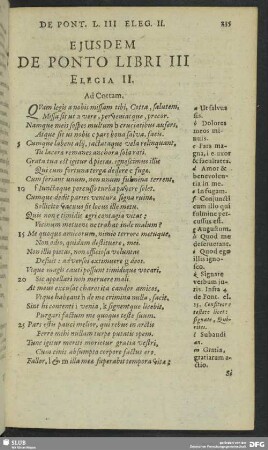 DE PONT. L. III ELEG. II. 235
EJUSDEM
DE PONTO LIBRI III
ELEGIA II.
Ad Cottam.
Quam legis a nobis missam tibi, Cotta, salutem,
Missa sit ut vere, perveniatque, precor.
Namque meis sospes multum cruciatibus aufers,
Atque sit ut nobis pars bona salva, facis.
5 Cumque labent alij, jactataque vela relinquant,
Tu lacerae remanes anchora sola rati.
Grata tua est igitur pietas. ignoscimus illis
Qui cum fortuna terga dedere fugae.
Cum feriant unum, non unum fulmina terrent,
10 Junctaque percusso turba pavere solet.
Cumque dedit paries venturae signa ruinae,
Sollicito vacuus fit locus ille metu.
Quis non e timidis aegri contagia vitat;
Vicinum metuens ne trahat inde malum?
15 Me quoque amicorum nimio terrore metuque,
Non odio, quidam destituere, mei.
Non illis pietas, non officiosa voluntas
Defuit: adversos extimuere deos.
Utque magis cauti possunt timidique vocari,
20 Sic appellari non meruere mali.
At meus excusat charos ita candor amicos,
Utque habeant de me crimina nulla, favet.
Sint hi contenti venia, signentque licebit,
Purgari factum me quoque teste suum.
25 Pars estis pauci melior, qui rebus in arctis
Ferre mihi nullam turpe putatis opem.
Tunc igitur meriti morietur gratia vestri,
Cum cinis absumpto corpore factus ero.
Fallor, & illa meae superabit tempora vitae;
a Ut salvus
sis.
b Dolores
meos mi-
nuis.
c Pars ma-
gna,
d Amor &
benevolen-
tia in me.
e In fugam.
f Conjuncti
cum illo qui
fulmine per-
cussus est.
g Augustum.
h Quod me
deseruerant.
i Quod ego
illis igno-
sco.
k Signare
verbum ju-
ris. Infra 4
de Pont. el.
l Subaudi
m Genia,
gratiarum a-
ctio.
Si
SLUB
DFG